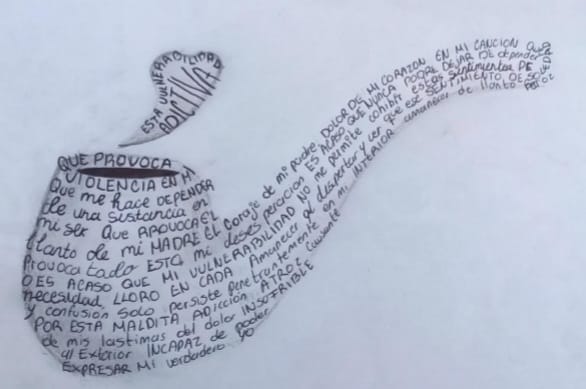 ESTA VULNERABILIDAD
ADICTIVA
QUE PROVOCA
VIOLENCIA EN MI
Que me hace DEPENDER
de una sustancia en
mi ser QUE APROVOCA EL
llanto de mi MADRE EL coraje de mi padre DOLOR DE MI CORAZON EN MI CANCION
Provoca todo ESTO mi desesperacion ES ACASO QUE NUNCA PODRE DEJAR DE depender
O ES ACASO QUE MI VULNERABILIDAD NO me permite cohibir estos sentimientos DE
necesidad, LLORO EN CADA Amanecer al despertar y ver que ese SENTIMIENTO DE
y confusion solo persiste penetrantemente en mi INTERIOR amanecer de llanto
POR ESTA MALDITA Adiccion ATROZ
de mis lastimas del dolor INSUFRIBLE
al Exterior INCAPAZ de poder
EXPRESAR Mi verdadero yo